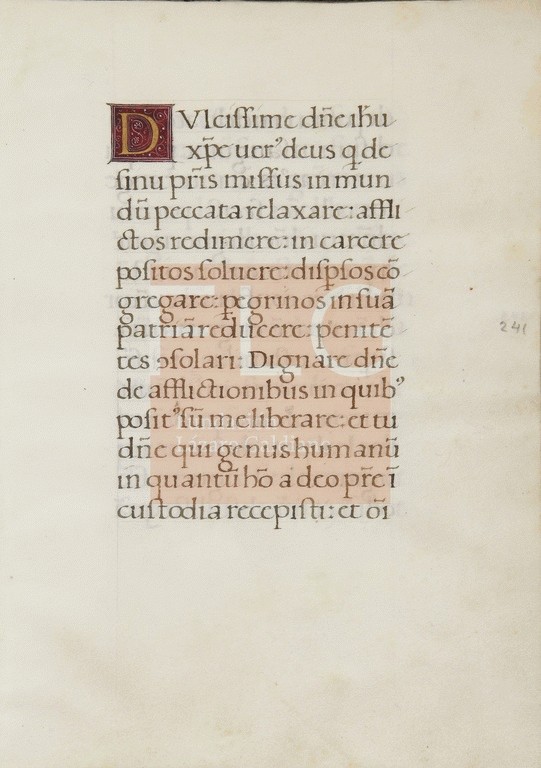 DVlcissime dn̄e ihū
xp̄e uer᾽ deus q̄ de
sinu pr̄is missus in mun
dū peccata relaxare: affli
ctos redimere: in carcere
positos soluere: disp̄sos cō
gregare: p̱egrinos in suā
patriā reducere: penitē
tes ꝯsolari: Dignare dn̄e
de afflictionibus in quib᾽
posit᾽ sū me liberare: et tu
dn̄e qui genus humanū
in quantū hō a deo pr̄e ī
custodia recepisti: et oī
241
FLG
Lázaro Galdiano